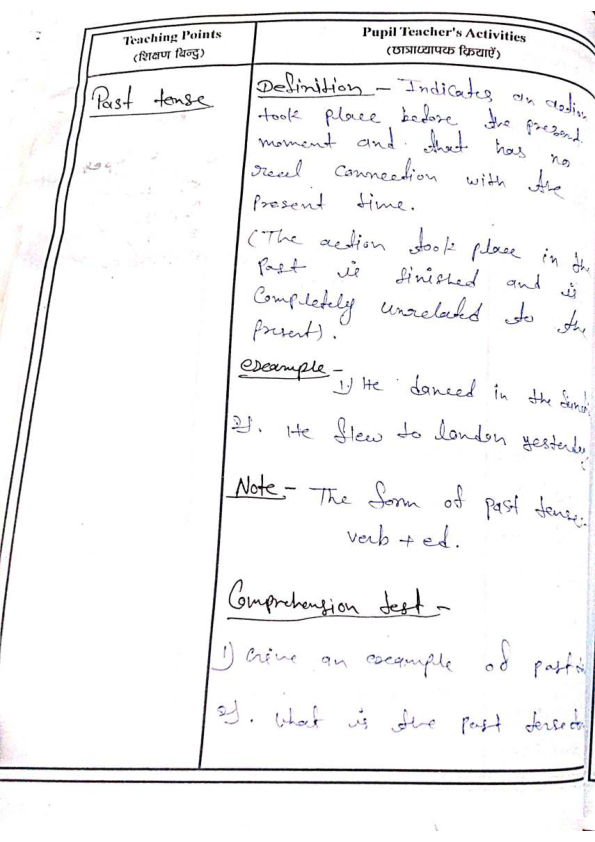 Teaching Points
(शिक्षण बिन्दु)
Pupil Teacher's Activities
(छात्राध्यापक क्रियाएँ)
Past tense
Definition - Indicates an action
took place before the present
moment and that has no
real connection with the
Present time.
(The action took place in the
Past is finished and is
Completely unrelated to the
present).
example -
1) He danced in the
2). He flew to london yesterday
Note - The form of past tense:-
verb + ed.
Comprehension test -
1) Give an example of past
2). What is the past tense